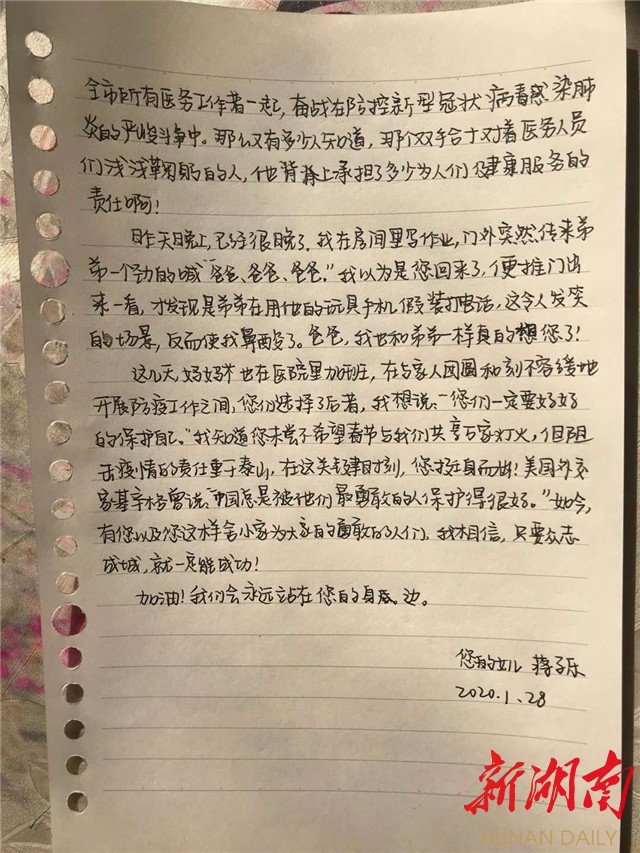 全市所有医务工作者一起，奋战在防控新型冠状病毒感染肺
炎的严峻斗争中。那么又有多少人知道，那个双手合十对着医务人员
们浅浅鞠躬的人，他背脊上承担了多少为人们健康服务的
责任啊！
昨天晚上，已经很晚了，我在房间里写作业，门外突然传来弟
弟一个劲的喊“爸爸、爸爸、爸爸。”我以为是您回来了，便推门出
来一看，才发现是弟弟在用他的玩具手机假装打电话，这令人发笑
的场景，反而使我鼻酸了。爸爸，我也和弟弟一样真的想您了！
这几天，妈妈也在医院里加班，在与家人团圆和刻不容缓地
开展防疫工作之间，您们选择了后者，我想说：“您们一定要好好
的保护自己。”我知道您未尝不希望春节与我们共享万家灯火，但阻
击疫情的责任重于泰山，在这关键时刻，您挺身而出！美国外交
家基辛格曾说：“中国总是被他们最勇敢的人保护得很好。”如今，
有您以及您这样舍小家为大家的勇敢的人们，我相信，只要众志
成城，就一定能成功！
加油！我们会永远站在您的身边。
您的女儿 蒋子乐
2020.1.28
新湖南
HUNAN DAILY